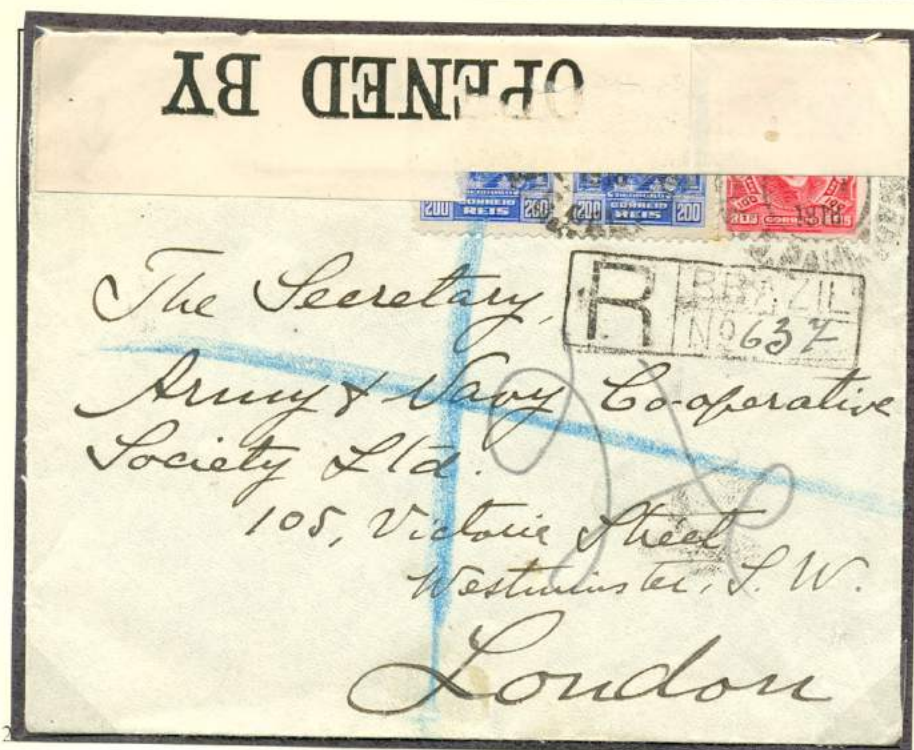 OPENED BY
200 CORREIO REIS 200 200 CORREIO REIS 200
100 CORREIO 100
R BRAZIL
No 637
The Secretary,
Army & Navy Co-operative
Society Ltd.
105, Victoria Street
Westminster, S. W.
London
2